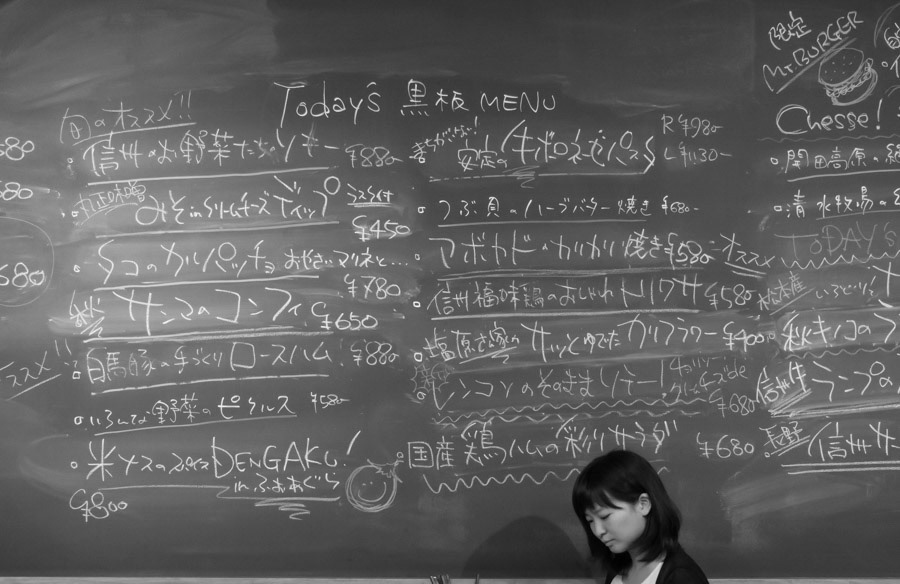 Today's 黒板 MENU
旬のオススメ!!
信州のお野菜たちのソテー ¥880-
みそinクリームチーズディップ
¥450
タコのカルパッチョ おやさいマリネと...
¥780
サンマのコンフィ
¥650
白馬豚の手づくりロースハム ¥880-
いろんな野菜のピクルス ¥580-
米ナスの DENGAKU!
in ふぉあぐら
¥800
安定の牛ボロネーゼパスタ
R ¥980-
L ¥1130-
つぶ貝のハーブバター焼き ¥680-
アボカドのカリカリ焼き ¥580- オススメ
信州福味鶏のおしゃれトリワサ ¥580-
塩原さん家のサッとゆでたカリフラワー ¥400-
レンコンのそのまんまソテー!
¥680
国産鶏ハムの彩りサラダ ¥680
限定
Mr BURGER
Chesse!
開田高原の
清水牧場の
TODAY'S
松本産 いろどり
秋キノコの
信州牛 ランプの
長野 信州サ
680
680
680
ススメ!!